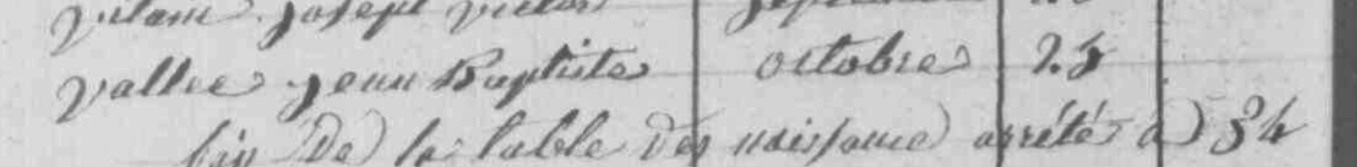 Joseph Victor
vallee Jean Baptiste octobre 25
fin de la table des naissance arrété a 34